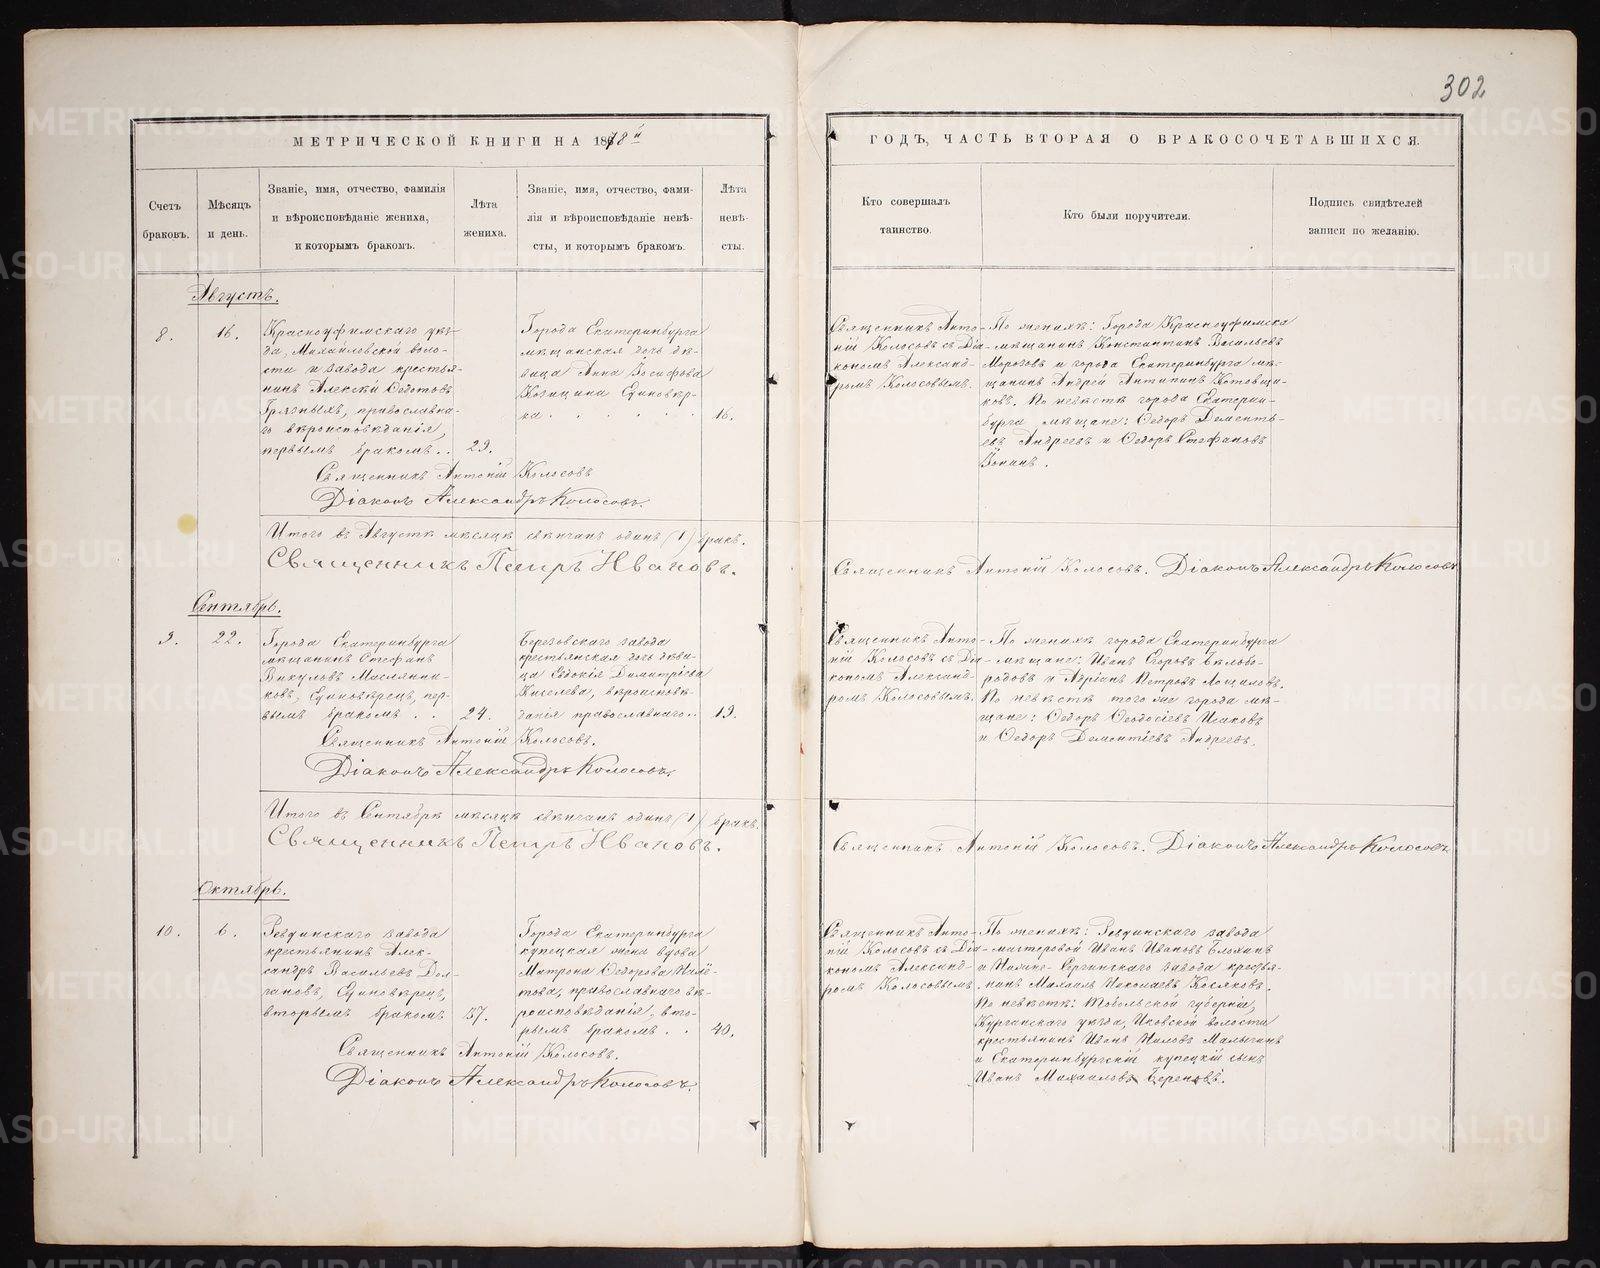 302
МЕТРИЧЕСКОЙ КНИГИ НА 1878й
ГОДЪ, ЧАСТЬ ВТОРАЯ О БРАКОСОЧЕТАВШИХСЯ.
Счетъ
браковъ.
Мѣсяцъ
и день.
Званіе, имя, отчество, фамилія
и вѣроисповѣданіе жениха,
и которымъ бракомъ.
Лѣта
жениха.
Званіе, имя, отчество, фами-
лія и вѣроисповѣданіе невѣ-
сты, и которымъ бракомъ.
Лѣта
невѣ-
сты.
Кто совершалъ
таинство.
Кто были поручители.
Подпись свидѣтелей
записи по желанію.
Августъ.
8.
16.
Красноуфимскаго уѣз-
да, Михайловской воло-
сти и завода крестья-
нинъ Алексѣй Ѳедотовъ
Грязныхъ, православна-
го вѣроисповѣданія,
первымъ бракомъ..
29.
Города Екатеринбурга
мѣщанская дочь дѣ-
вица Анна Іосифова
Козицина Единовѣр-
ка . . . . . .
16.
Священникъ Анто-
ній Колосовъ съ Діа-
кономъ Александ-
ромъ Колосовымъ.
По женихѣ: Города Красноуфимска
мѣщанинъ Константинъ Васильевъ
Морозовъ и города Екатеринбурга мѣ-
щанинъ Андрей Антипинъ Котовщи-
ковъ. По невѣстѣ города Екатерин-
бурга мѣщане: Ѳедоръ Дементь-
евъ Андреевъ и Ѳедоръ Стефановъ
Священникъ Антоній Колосовъ
Діаконъ Александръ Колосовъ.
Итого въ Августѣ мѣсяцѣ свѣнчанъ одинъ (1) бракъ.
Священникъ Петръ Ивановъ.
Священникъ Антоній Колосовъ. Діаконъ Александръ Колосовъ
Сентябрь.
9.
22.
Города Екатеринбурга
мѣщанинъ Стефанъ
Викуловъ Маслянни-
ковъ, Единовѣрецъ, пер-
вымъ бракомъ . .
24.
Березовскаго завода
крестьянская дочь дѣви-
ца Евдокія Димитріева
Киселева, вѣроисповѣ-
данія православнаго..
19.
Священникъ Анто-
ній Колосовъ съ Діа-
кономъ Александ-
ромъ Колосовымъ.
По женихѣ города Екатеринбурга
мѣщане: Иванъ Егоровъ Бѣлобо-
родовъ и Адріанъ Петровъ Лощиловъ.
По невѣстѣ того же города мѣ-
щане: Ѳедоръ Ѳеодосіевъ Исаковъ
и Ѳедоръ Дементіевъ Андреевъ.
Священникъ Антоній Колосовъ.
Діаконъ Александръ Колосовъ.
Итого въ Сентябрѣ мѣсяцѣ свѣнчанъ одинъ (1) бракъ.
Священникъ Петръ Ивановъ.
Священникъ Антоній Колосовъ. Діаконъ Александръ Колосовъ.
Октябрь.
10.
6.
Ревдинскаго завода
крестьянинъ Алек-
сандръ Васильевъ Дол-
гановъ, Единовѣрецъ,
вторымъ бракомъ
37.
Города Екатеринбурга
купецкая жена вдова
Матрона Ѳедорова
православнаго вѣ-
роисповѣданія, вто-
рымъ бракомъ . .
40.
Священникъ Анто-
ній Колосовъ съ Діа-
кономъ Александ-
ромъ Колосовымъ.
По женихѣ: Ревдинскаго завода
мастеровой Иванъ Ивановъ Блохинъ
и Нижне-Сергинскаго завода кресьтя-
нинъ Михаилъ Николаевъ Косяковъ.
По невѣстѣ: Тобольской губерніи,
Курганскаго уѣзда, Иковской волости
крестьянинъ Иванъ Ниловъ Малыгинъ
и Екатеринбургскій купецкій сынъ
Иванъ Михаиловъ Береновъ.
Священникъ Антоній Колосовъ.
Діаконъ Александръ Колосовъ.
METRIKI.GASO-URAL.RU